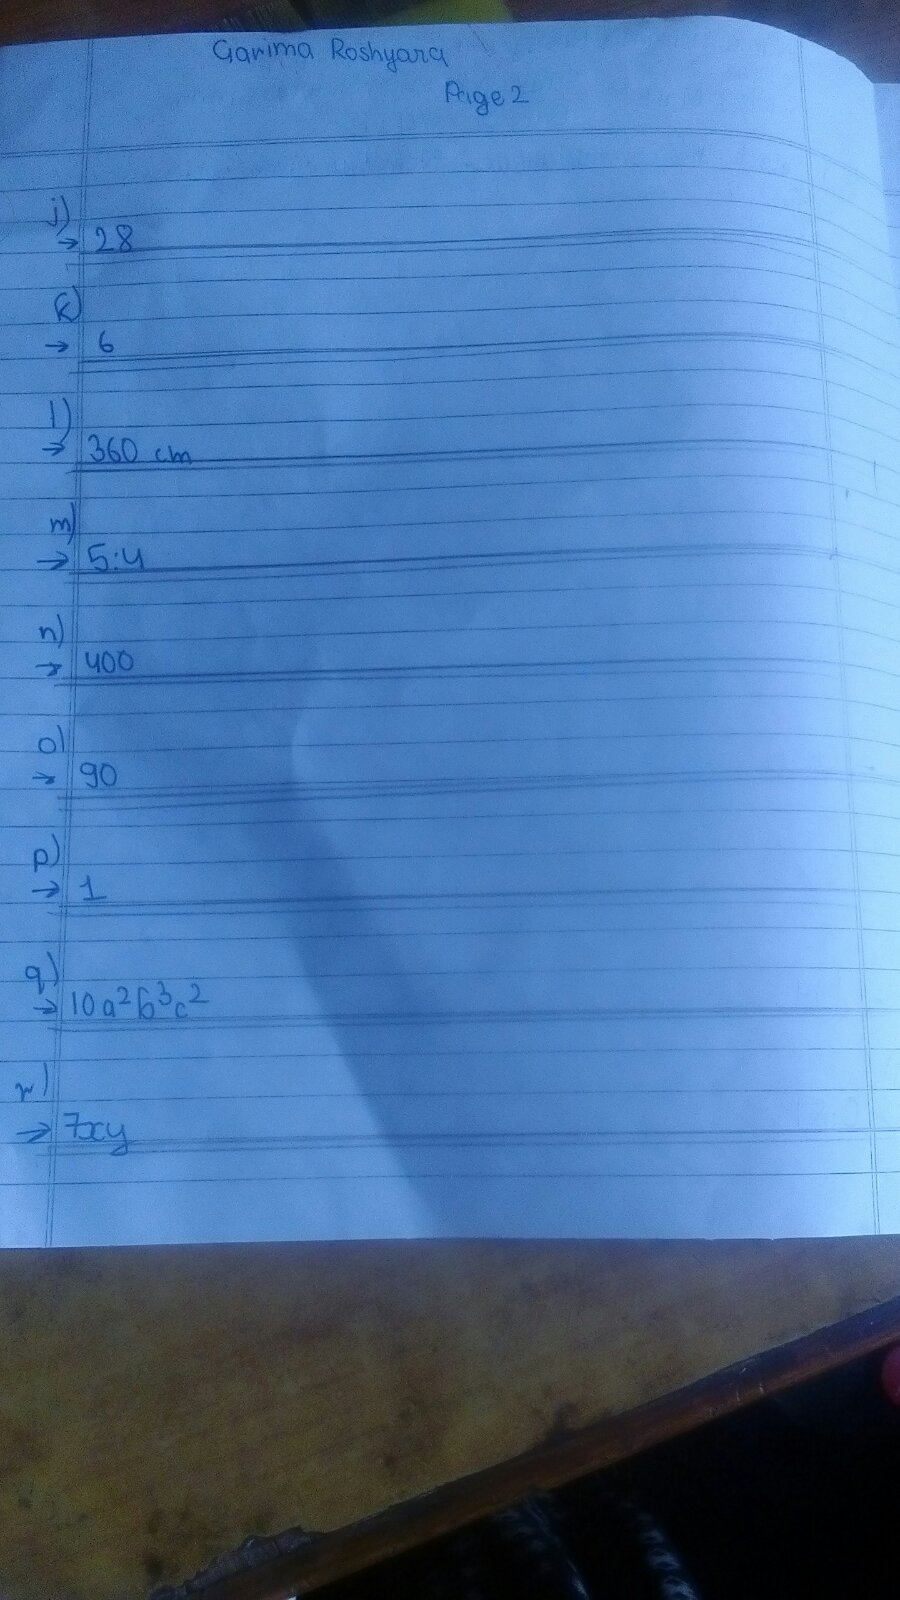 Garima Roshyara
Page 2
j)
→ 28
k)
→ 6
l)
→ 360 cm
m)
→ 5:4
n)
→ 400
o)
→ 90
p)
→ 1
q)
→ 10a²b³c²
r)
→ 7xy